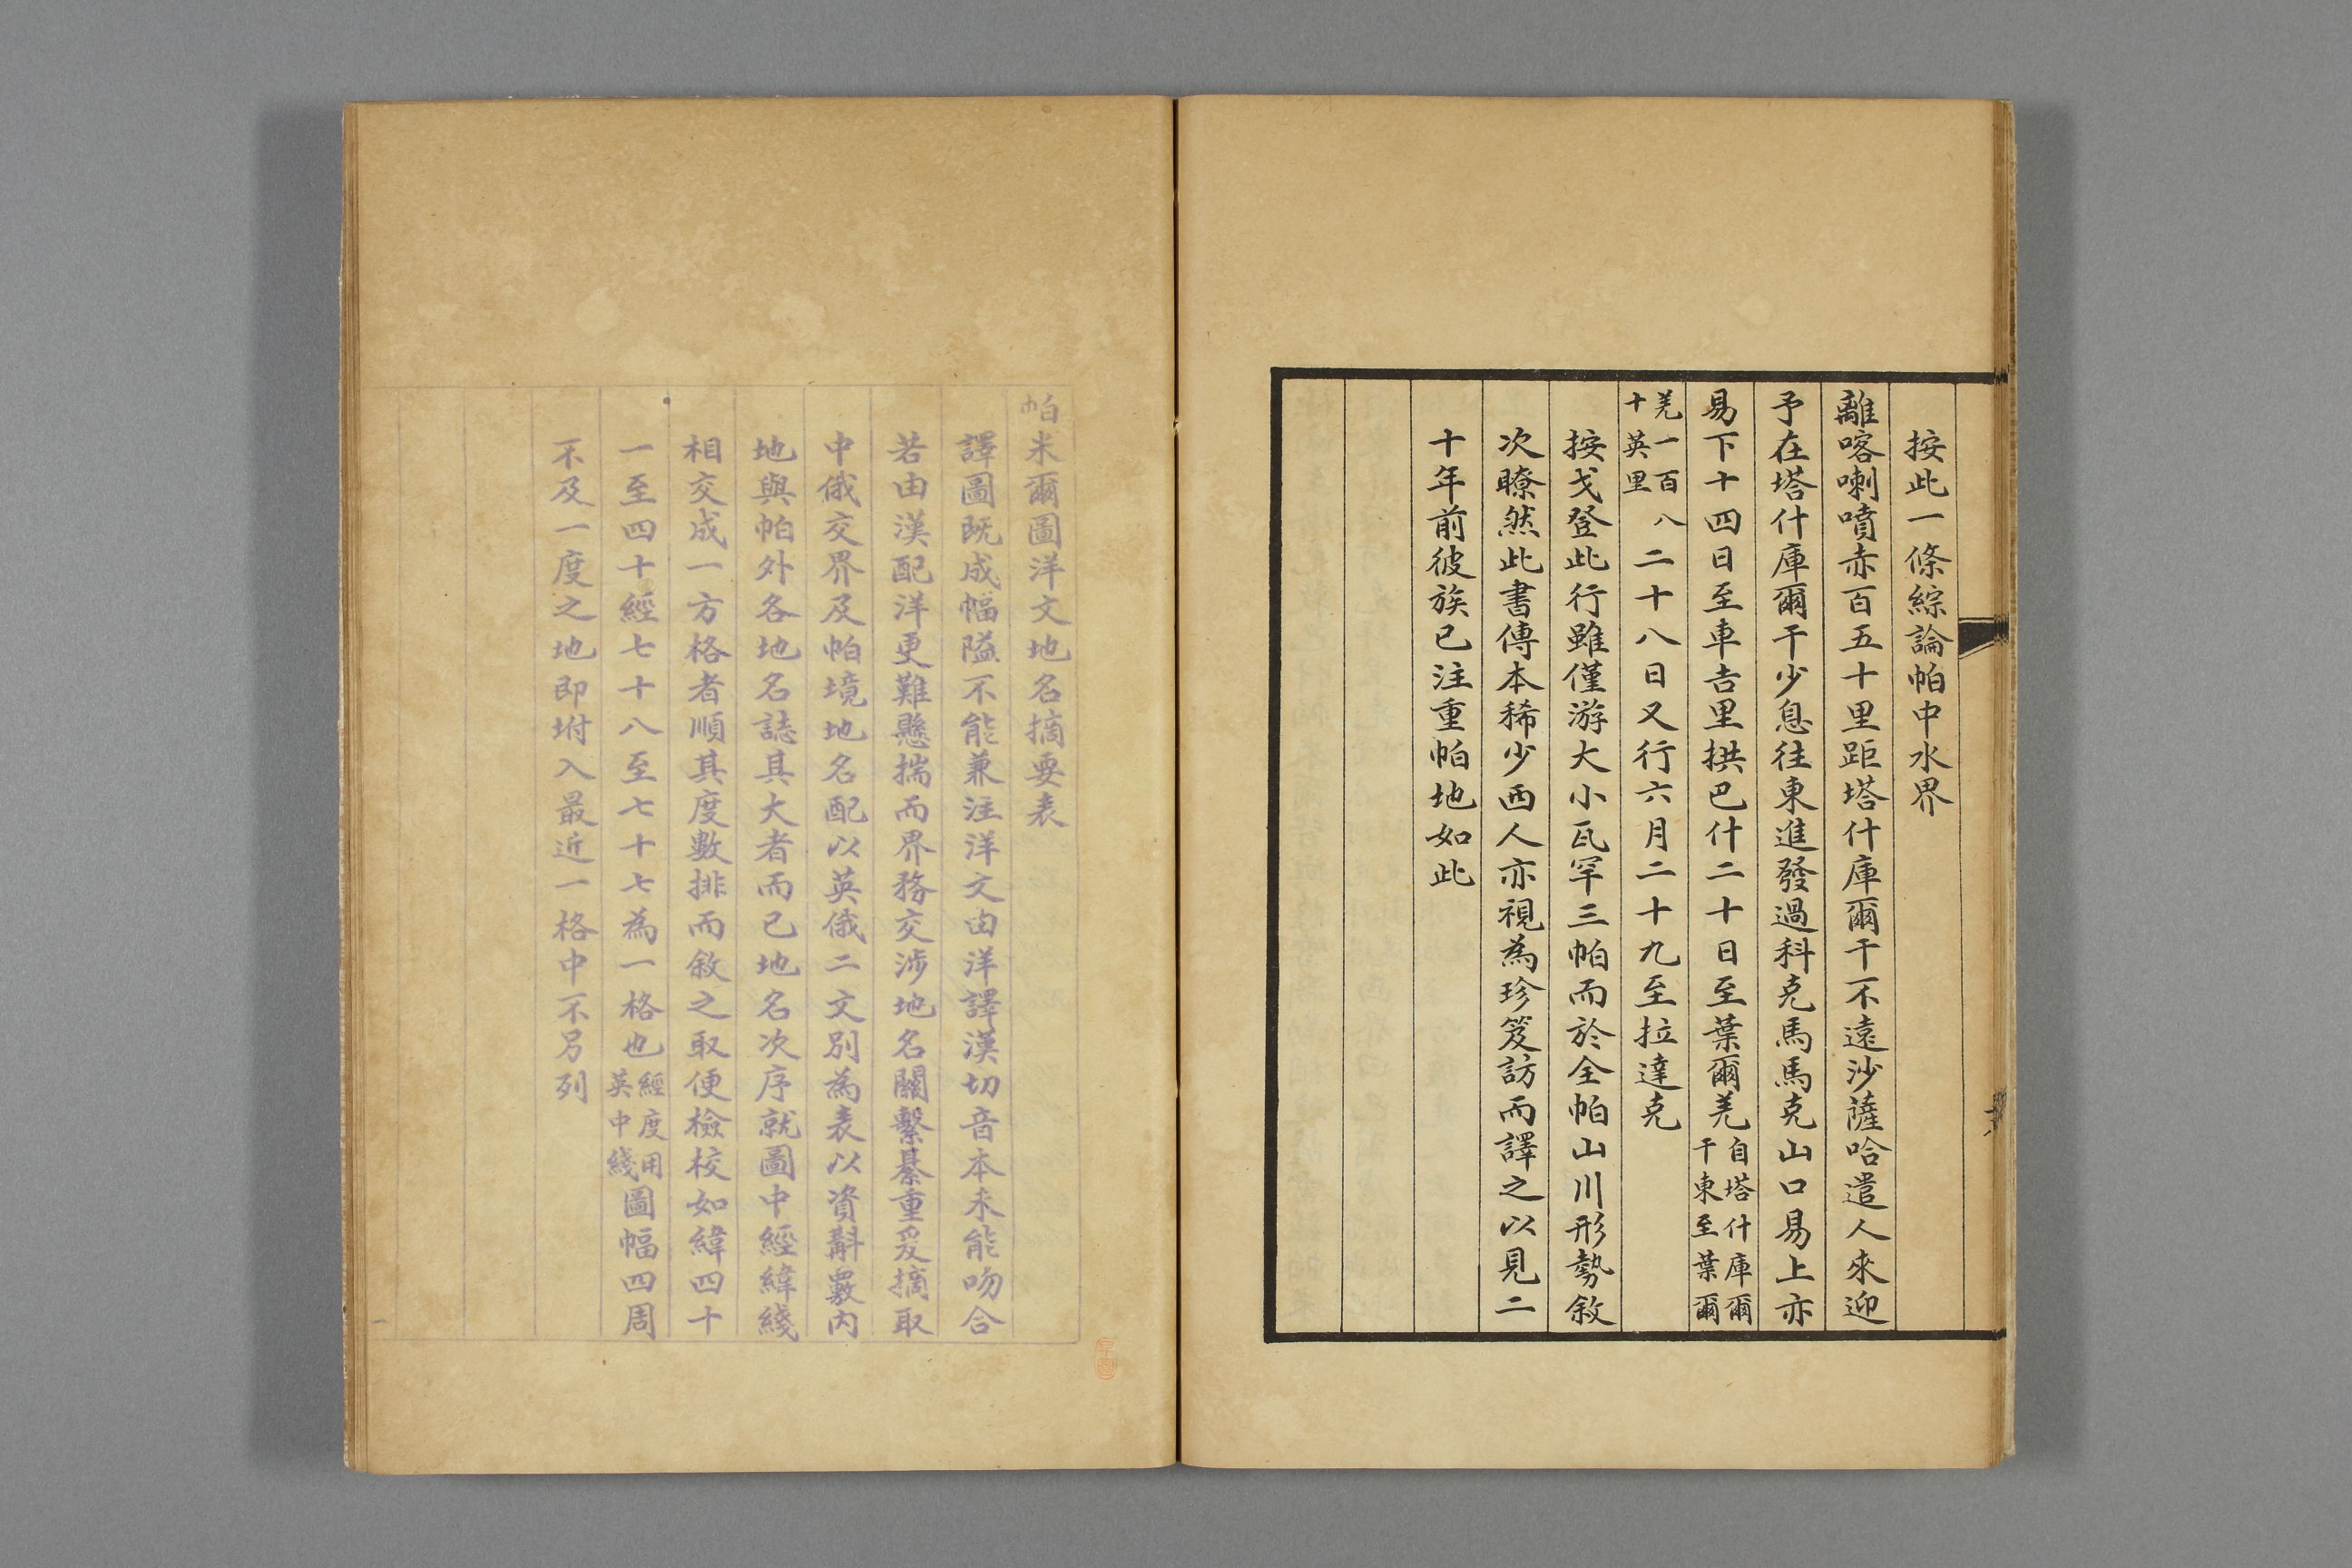 按此一條綜論帕中水界
離喀喇噴赤百五十里距塔什庫爾干不遠沙薩哈遣人來迎
予在塔什庫爾干少息往東進發過科克馬馬克山口易上亦
易下十四日至車吉里拱巴什二十日至葉爾羌自塔什庫爾干東至葉爾
羌一百八十英里二十八日又行六月二十九至拉達克
按戈登此行雖僅游大小瓦罕三帕而於全帕山川形勢敘
次瞭然此書傳本稀少西人亦視為珍笈訪而譯之以見二
十年前彼族已注重帕地如此
帕米爾圖洋文地名摘要表
譯圖既成幅隘不能兼注洋文由洋譯漢切音本未能吻合
若由漢配洋更難懸揣而界務交涉地名關繫綦重爰摘取
中俄交界及帕境地名配以英俄二文別為表以資斠覈內
地與帕外各地名誌其大者而已地名次序就圖中經緯綫
相交成一方格者順其度數排而敘之取便檢校如緯四十
一至四十經七十八至七十七為一格也經度用英中綫圖幅四周
不及一度之地即坿入最近一格中不另列